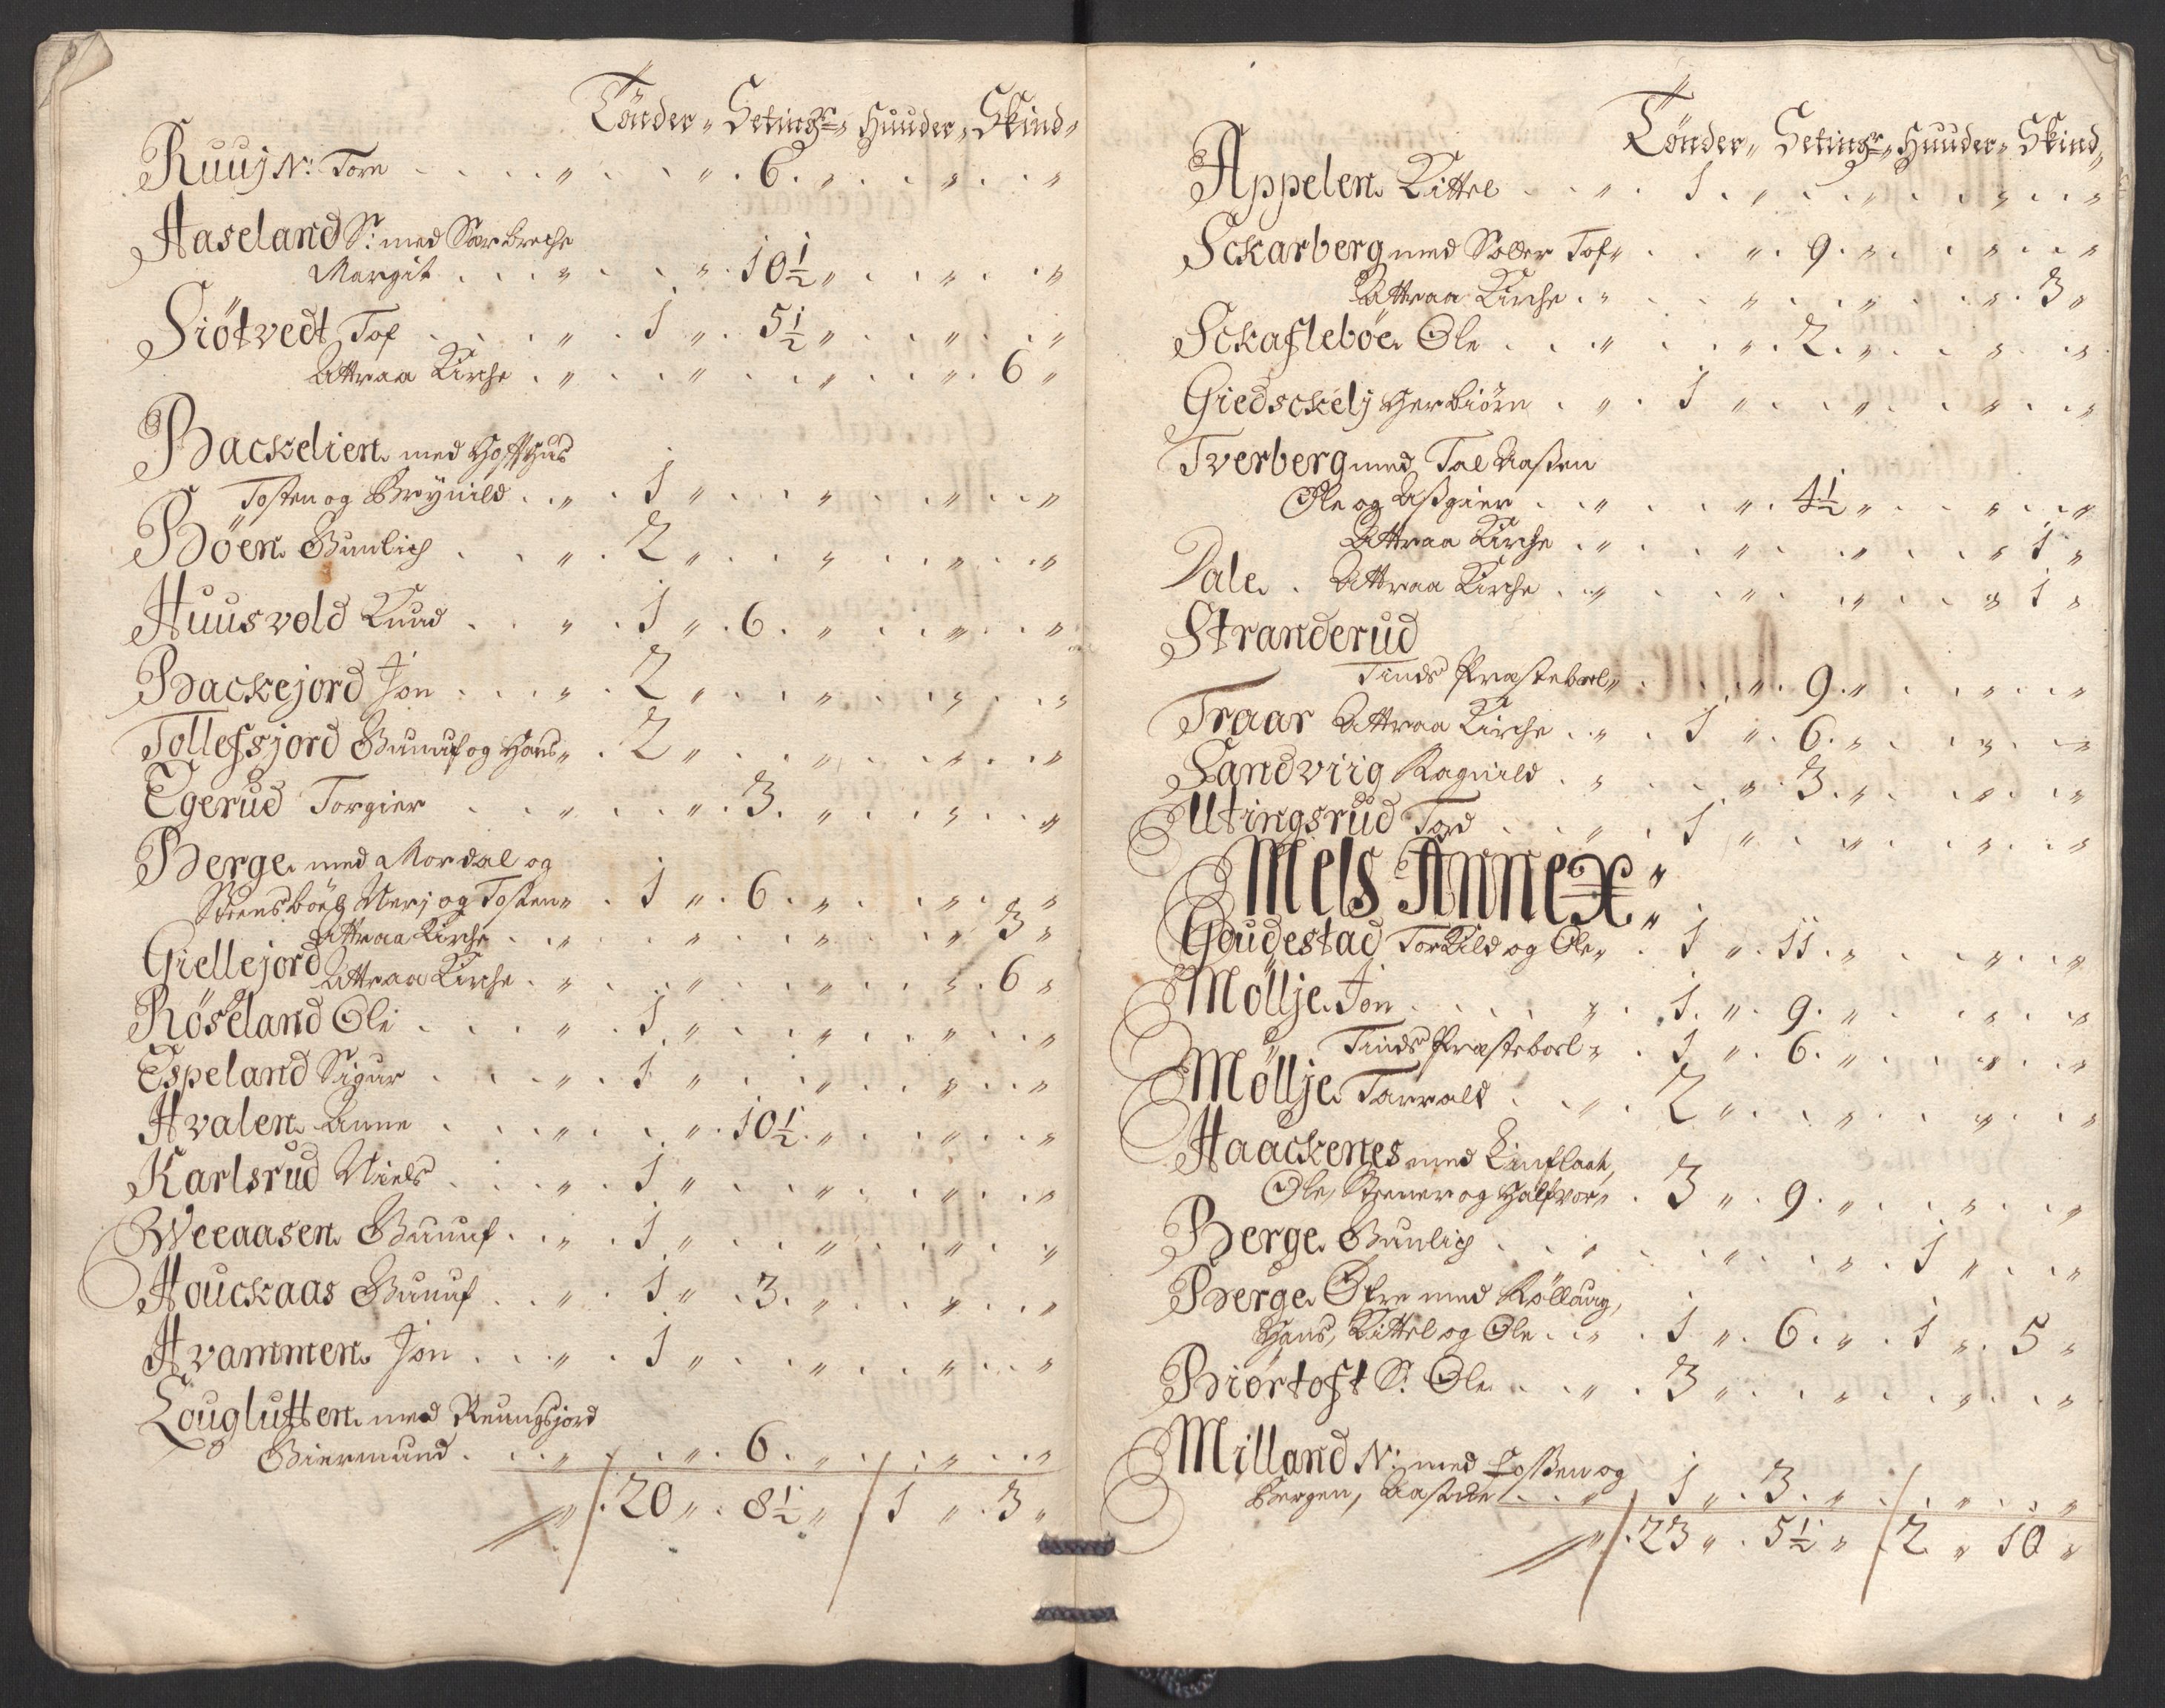 Tönder „ Setingr „ Huuder „ Skind „
Ruuj N: Tore . . . . „ . . „ . 6 . „ . . „ . . „
Haaseland S: med Sørbrecke
Margit . . . „ . . „ . 10½ „ . . „ . . „
Siötvedt Tof . . . „ . 1 „ . 5½ „ . . „ . . „
Attraa Kirche . „ . . „ . . „ . . „ . 6 „
Backelien med Hoffhus
Tosten og Brÿnild . . „ . 1 „ . . „ . . „ . . „
Böen Gunlich . . „ . 2 „ . . „ . . „ . . „
Huusvold Knud . . „ . 1 „ . 6 . „ . . „ . . „
Backejord Jon . . . „ . 2 „ . . „ . . „ . . „
Tollefsjord Gunuf og Hans „ . 2 „ . . „ . . „ . . „
Egerud Torgier . . „ . . „ . 3 . „ . . „ . . „
Berge med Mordal og
Steensböle Nerj og Tosten „ . 1 „ . 6 . „ . . „ . . „
Attraa Kirche . . „ . . „ . . „ . . „ 3 „
Giellejord Attraa Kirche . „ . . „ . . „ . . „ . 6 „
Röseland Ole . . . „ . 1 „ . . „ . . „ . . „
Espeland Sigur . . . „ . 1 „ . . „ . . „ . . „
Hvalen Anne . . . „ . . „ . 10½ . „ . . „ . . „
Karlsrud Niels . . . „ . 1 „ . . „ . . „ . . „
Weeaasen Gunuf . . „ . 1 „ . . „ . . „ . . „
Houckaas Gunuf . . „ . 1 „ . 3 . „ . . „ . . „
Hvammen Jon . . . „ . 1 „ . . „ . . „ . . „
Louglutten med Reungsjord
Giermund . . . „ . . „ . 6 . „ . . „ . . „
„ / . 20 „ . 8½ „ / 1 „ . 3 „
Tönder „ Setingr „ Huuder „ Skind „
Appelen Kittel . . „ . 1 . „ . . „ . . „ . . „
Sckarberg med Soller Tof „ . . „ . 9 . „ . . „ . . „
Attraa Kirche . „ . . „ . . „ . . „ . 3 „
Sckafleböe Ole . . . „ . . „ . 2 . „ . . „ . . „
Giedsckelj Herbiörn . „ . 1 „ . . „ . . „ . . „
Tverberg med Talaasen
Ole og Asgier . . „ . . „ . 4½ „ . . „ . . „
Attraa Kirche . „ . . „ . . „ . . „ 1 „
Dale . Attraa Kirche . . „ . . „ . . „ . . „ 1 „
Stranderud
Tinds Præsteboel „ . . „ . 9 . „ . . „ . . „
Traar Attraa Kirche . . „ . 1 „ . 6 . „ . . „ . . „
Sandviig Ragnild . „ . . „ . 3 . „ . . „ . . „
Utingsrud Tord . . „ . 1 „ . . „ . . „ . . „
Mels Annex „
Goudestad Torkild og Ole „ . 1 „ . 11 . „ . . „ . . „
Möllje Jon . . . . „ . 1 . „ . 9 . „ . . „ . . „
Tinds Præsteboel „ . 1 „ . 6 . „ . . „ . . „
Möllje Tarvald . . „ . 2 „ . . „ . . „ . . „
Haackenes med Linflaat,
Ole, Steener og Halfvor „ . 3 „ . 9 . „ . . „ . . „
Berge Gunlich . . . „ . . „ . . „ . 1 „ . . „
Berge Øfre med Rollaug,
Hans, Kittel og Ole . . „ . 1 „ . 6 . „ . 1 „ . 5 „
Biörtoft S: Ole . . „ . 3 „ . . „ . . „ . . „
Milland N: med Fossen og
Bergen, Aaste . . „ 1 „ . 3 . „ . . „ . . „
„ / . 23 „ . 5½ „ / 2 „ 10 „